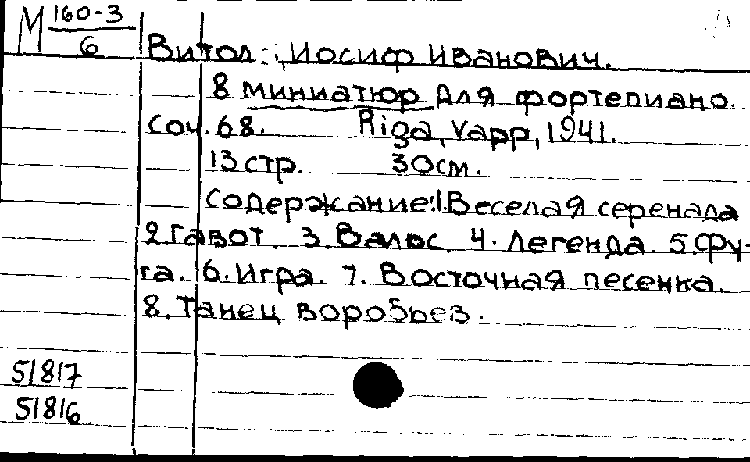 М 160-3
6
Витол: Иосиф Иванович.
8 миниатюр для фортепиано.
Соч. 68. Riga, Vapp, 1941.
13 стр. 30 см.
Содержание: 1. Веселая серенада
2. Гавот. 3. Вальс. 4. Легенда. 5. Фу-
га. 6. Игра. 7. Восточная песенка.
8. Танец воробьев.
51817
51816